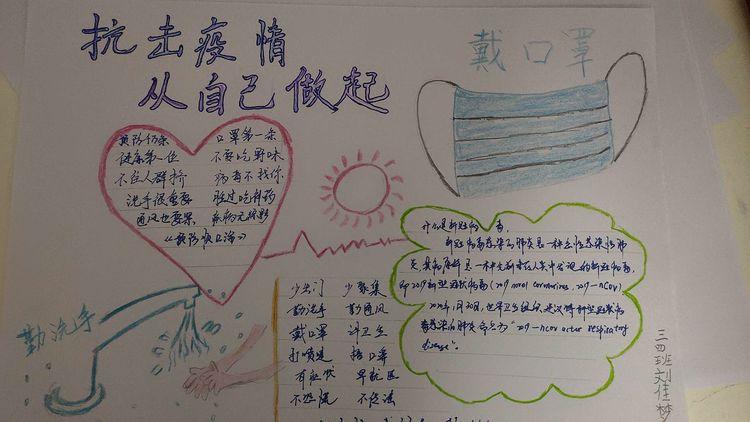 抗击疫情
从自己做起
戴口罩
预防
口罩第一条
健康第一位
不要吃野味
不往人群挤
病毒不找你
洗手很重要
胜过吃补药
通风也要
勤洗手
少出门
少聚集
勤洗手
勤通风
戴口罩
讲卫生
打喷嚏
捂口罩
有症状
早就医
什么是新冠病毒,
新冠病毒感染的肺炎是一种急性感染性肺
炎,其病原体是一种先前未在人类中发现的新冠病毒,
即2019新型冠状病毒(2019 novel coronavirus, 2019-nCoV)
2020年1月30日,世界卫生组织,建议将新型冠状病
毒感染的肺炎命名为"2019-nCoV acter respiratory
disease"。
三四班刘佳梦